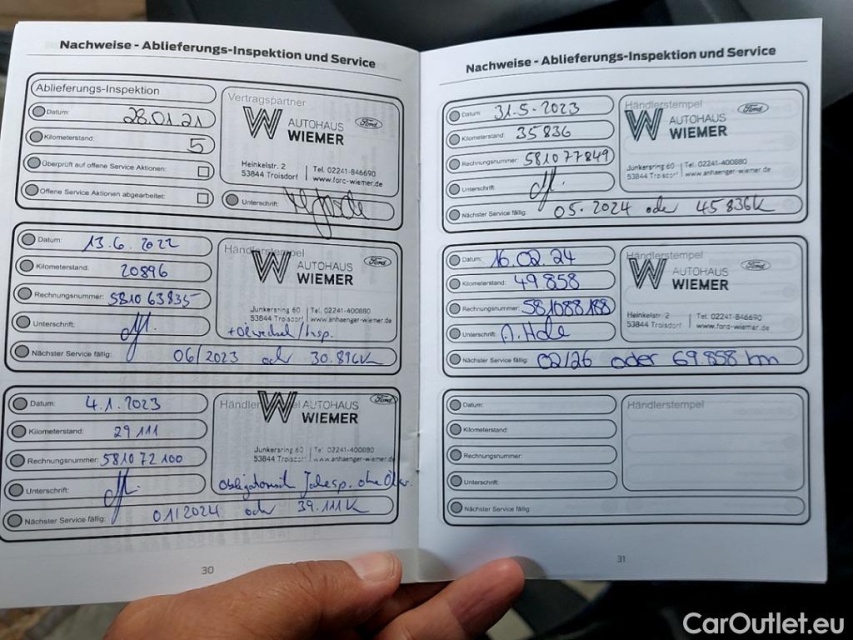 Nachweise - Ablieferungs-Inspektion und Service
Ablieferungs-Inspektion
Datum: 28.01.21
Kilometerstand: 5
Überprüft auf offene Service Aktionen:
Offene Service Aktionen abgearbeitet:
Vertragspartner
W AUTOHAUS WIEMER
Ford
Heinkelstr. 2
53844 Troisdorf
Tel. 02241-846690
www.ford-wiemer.de
Unterschrift:
Datum: 13.6.2022
Kilometerstand: 20896
Rechnungsnummer: 581063835
Unterschrift:
Nächster Service fällig: 06/2023 oder 30.896K
W AUTOHAUS WIEMER
Ford
Junkersring 60
53844 Troisdorf
Tel. 02241-400880
www.anhaenger-wiemer.de
+Ölwechsel/Insp.
Datum: 4.1.2023
Kilometerstand: 29111
Rechnungsnummer: 581072100
Unterschrift:
Nächster Service fällig: 01/2024 oder 39.111K
W AUTOHAUS WIEMER
Ford
Junkersring 60
53844 Troisdorf
Tel. 02241-400880
www.anhaenger-wiemer.de
30
Nachweise - Ablieferungs-Inspektion und Service
Datum: 31.5.2023
Kilometerstand: 35836
Rechnungsnummer: 581077849
Unterschrift:
Nächster Service fällig: 05.2024 oder 45836K
Händlerstempel
W AUTOHAUS WIEMER
Ford
Junkersring 60
53844 Troisdorf
Tel. 02241-400880
www.anhaenger-wiemer.de
Datum: 16.02.24
Kilometerstand: 49858
Rechnungsnummer: 581088188
Unterschrift:
Nächster Service fällig: 02/26 oder 69.858 km
Händlerstempel
W AUTOHAUS WIEMER
Ford
Heinkelstr. 2
53844 Troisdorf
Tel. 02241-846690
www.ford-wiemer.de
Datum:
Kilometerstand:
Rechnungsnummer:
Unterschrift:
Nächster Service fällig:
Händlerstempel
31
CarOutlet.eu